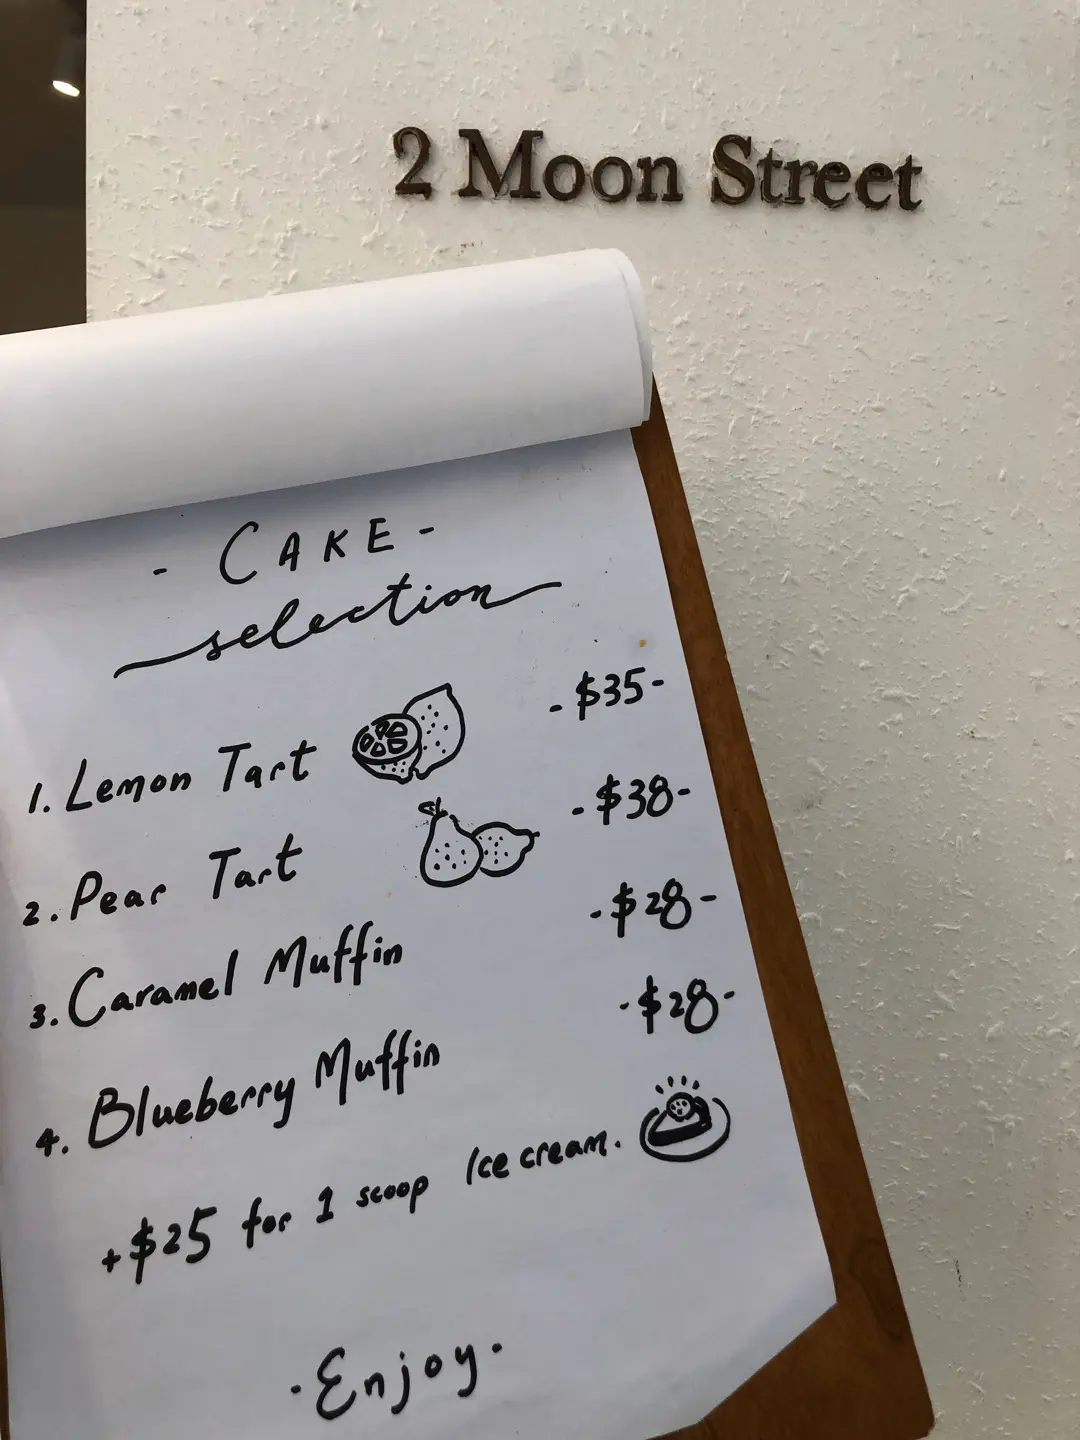 2 Moon Street
- CAKE -
selection
1. Lemon Tart -$35-
2. Pear Tart -$38-
3. Caramel Muffin -$28-
4. Blueberry Muffin -$28-
+$25 for 1 scoop Ice cream.
·Enjoy·